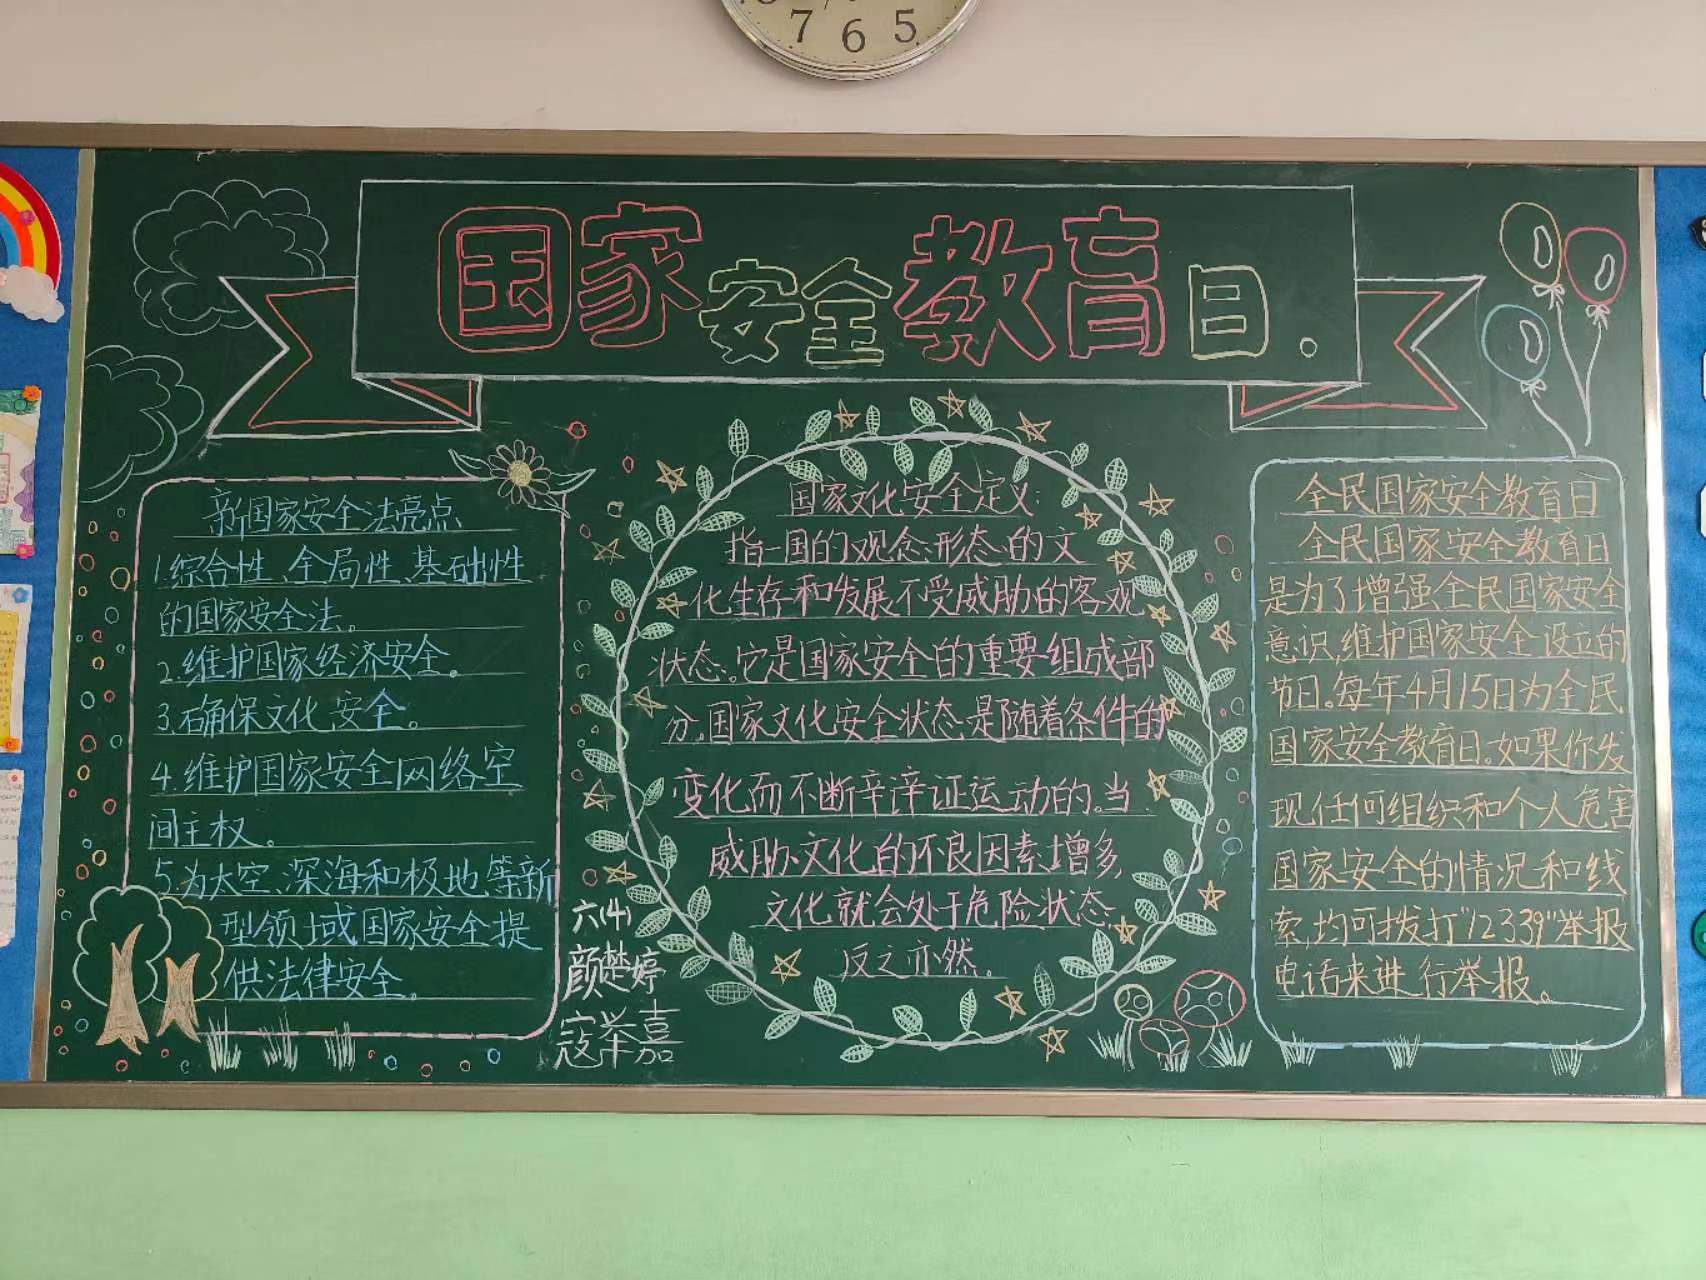 7 6 5
国家安全教育日.
新国家安全法亮点
1.综合性、全局性、基础性
的国家安全法。
2.维护国家经济安全。
3.确保文化安全。
4.维护国家安全网络空
间主权。
5.为太空、深海和极地等新
型领域国家安全提
供法律安全。
六(4)
颜楚婷
寇举嘉
国家文化安全定义:
指一国的观念形态的文
化生存和发展不受威胁的客观
状态。它是国家安全的重要组成部
分,国家文化安全状态是随着条件的
变化而不断辛谇证运动的。当
威胁文化的不良因素增多,
文化就会处于危险状态,
反之亦然。
全民国家安全教育日
全民国家安全教育日
是为了增强全民国家安全
意识,维护国家安全设立的
节日。每年4月15日为全民
国家安全教育日。如果你发
现任何组织和个人危害
国家安全的情况和线
索,均可拨打"12339"举报
电话来进行举报。